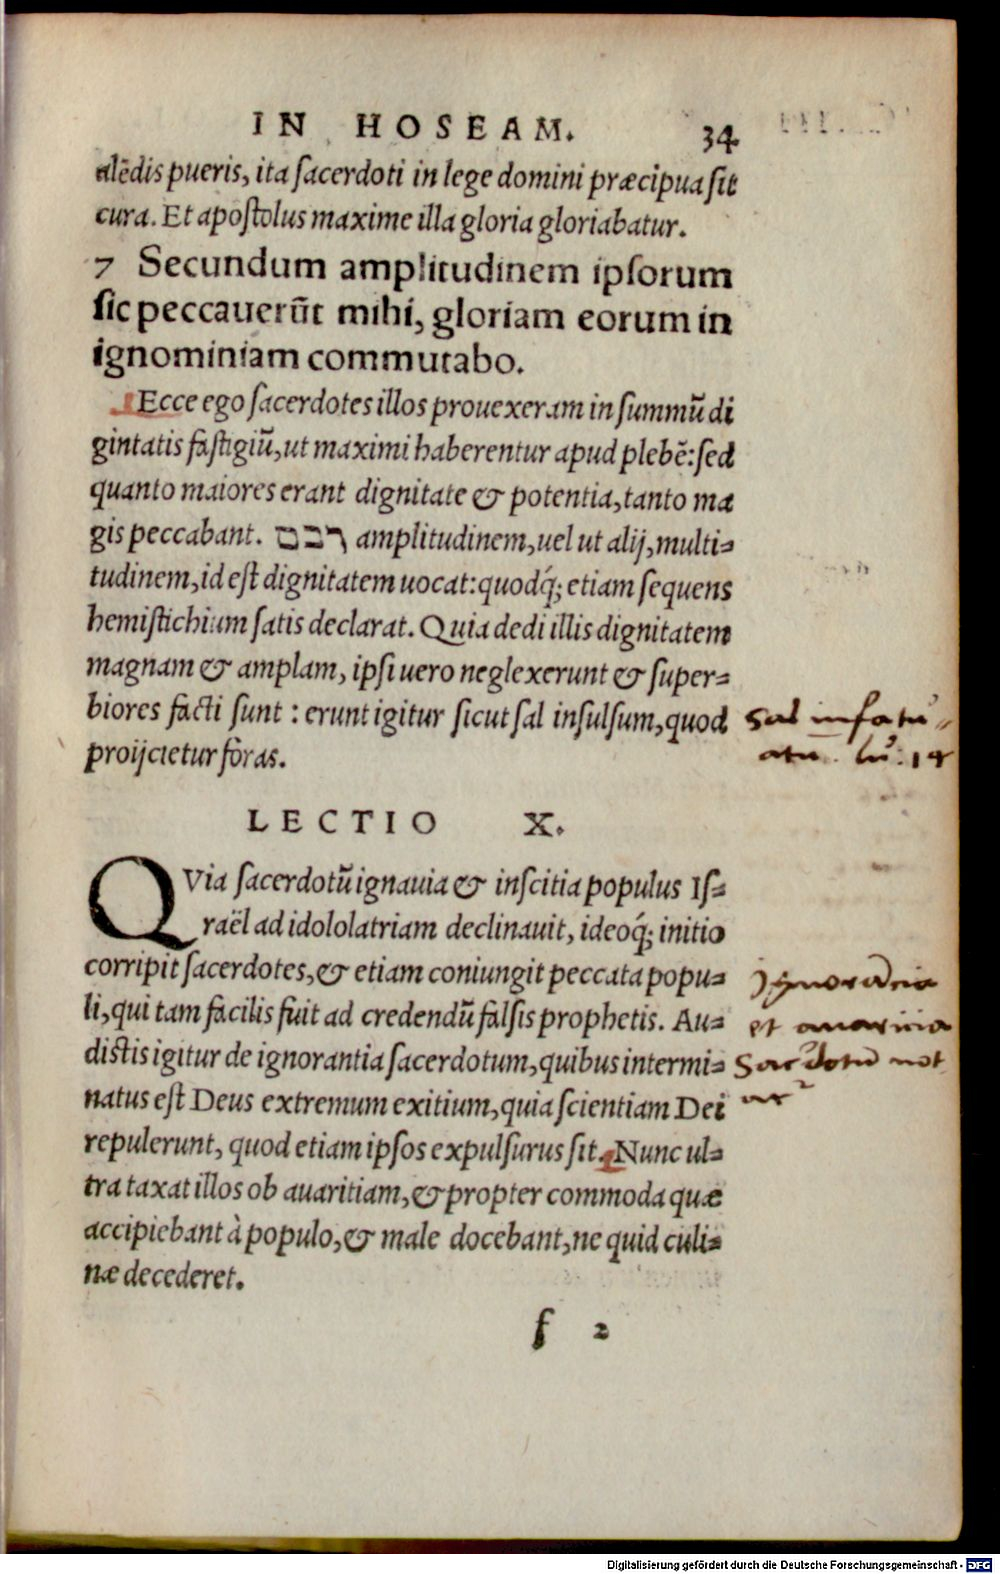 IN HOSEAM. 34
alēdis pueris, ita sacerdoti in lege domini præcipua sit
cura. Et apostolus maxime illa gloria gloriabatur.
7 Secundum amplitudinem ipsorum
sic peccauerūt mihi, gloriam eorum in
ignominiam commutabo.
Ecce ego sacerdotes illos prouexeram in summū di
gintatis fastigiū, ut maximi haberentur apud plebē: sed
quanto maiores erant dignitate & potentia, tanto ma
gis peccabant. רבם amplitudinem, uel ut alij, multi=
tudinem, id est dignitatem uocat: quodq́; etiam sequens
hemistichium satis declarat. Quia dedi illis dignitatem
magnam & amplam, ipsi uero neglexerunt & super=
biores facti sunt : erunt igitur sicut sal insulsum, quod
proijcietur foras.
Sal infatu=
atu. lu: 14
LECTIO X.
QVia sacerdotū ignauia & inscitia populus Is=
raël ad idololatriam declinauit, ideoq́; initio
corripit sacerdotes, & etiam coniungit peccata popu=
li, qui tam facilis fuit ad credendū falsis prophetis. Au=
distis igitur de ignorantia sacerdotum, quibus intermi=
natus est Deus extremum exitium, quia scientiam Dei
repulerunt, quod etiam ipsos expulsurus sit. Nunc ul=
tra taxat illos ob auaritiam, & propter commoda quæ
accipiebant à populo, & male docebant, ne quid culi=
næ decederet.
Ignorācia
et auaricia
Sacdotū not
f 2
Digitalisierung gefördert durch die Deutsche Forschungsgemeinschaft - DFG